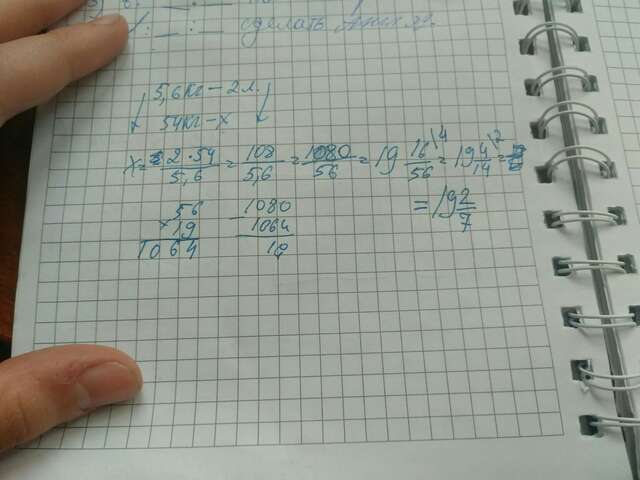 сделать
5,6кг – 2л.
54кг – x
x = 2·54/5,6 = 108/5,6 = 1080/56 = 19 16/56 \4 = 19 4/14 \2 =
= 19 2/7
56 1080
× 19 1064
1064 16